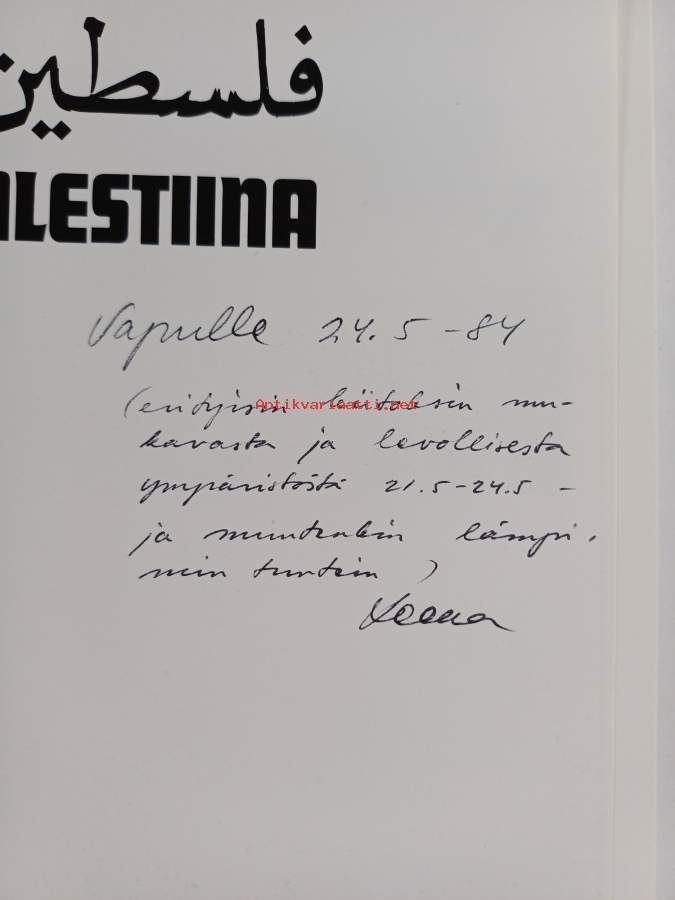 فلسطين
ALESTIINA
Vapulle 24.5 -84
(erityisin kiitoksin mu-
Antikvariaatti.net
kavasta ja levollisesta
ympäristöstä 21.5-24.5 -
ja muutenkin lämpi-
min tuntein )
Leena